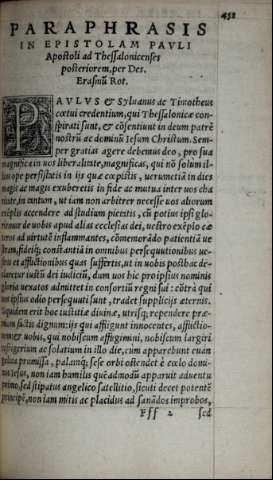 452
PARAPHRASIS
IN EPISTOLAM PAVLI
Apostoli ad Thessalonicenses
posteriorem, per Des.
Erasmũ Rot.
PAVLVS & Syluanus ac Timotheus
cœtui credentium, qui Thessalonicæ con-
spirati sunt, & cõsentiunt in deum patrẽ
nostrũ ac dominũ Iesum Christum. Sem-
per gratias agere debemus deo, pro sua
magnifica in uos liberalitate, magnificas, qui nõ solum il-
lius ope persistitis in ijs quæ cœpistis, uerumetiã in dies
magis ac magis exuberetis in fide ac mutua inter uos cha
ritate, in tantum, ut iam non arbitrer necesse uos aliorum
exẽplis accendere ad studium pietatis, cũ potius ipsi glo-
riemur de uobis apud alias ecclesias dei, uestro exẽplo cæ
teros ad uirtutẽ inflammantes, cõmemorãdo patientiã ue
stram, fideiq; constantiã in omnibus persequutionibus ue-
stris et afflictionibus quas suffertis, ut in uobis posthac de-
claretur iusti dei iudiciũ, dum uos hic pro ipsius nominis
gloria uexatos admittet in consortiũ regni sui: cõtrà qui
uos ipsius odio persequuti sunt, tradet supplicijs æternis.
Siquidem erit hoc iustitiæ diuinæ, utrisq; rependere præ-
mium factis dignum: ijs qui affligunt innocentes, afflictio-
nem: uobis, qui nobiscum affligimini, nobiscum largiri
refrigerium ac solatium in illo die, cum apparebunt euan
gelica promissa, palamq; sese orbi ostendet è cœlo domi-
nus Iesus, non iam humilis quẽadmodũ apparuit aduentu
primo, sed stipatus angelico satellitio, sicuti decet potentẽ
principẽ, non iam mitis ac placidus ad sanãdos improbos,
Fff 2 sed